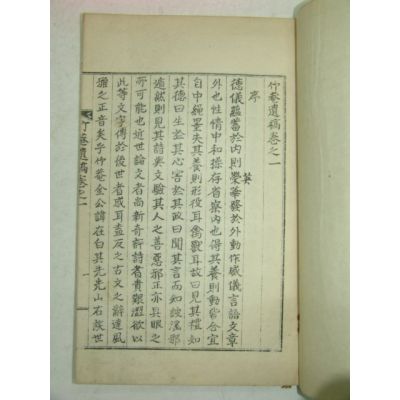 竹菴遺稿卷之一
序
德儀蘊蓄於內則榮華發於外動作威儀言語文章
外也性情中和操存省察內也得其養則動皆合宜
自中繩墨失其養則形役耳禽獸耳故曰見其禮知
其德曰生於其心害於其政曰聞其言而知
然則見其詩與文驗其人之善惡邪正亦具眼之
所可能也近世論文者尚新奇評詩者貴艱澀欲以
此等文字傳於後世者或耳盍反之古文之辭達風
雅之正音矣乎竹菴金公諱在白其先光山石族世
竹菴遺稿卷之一
一